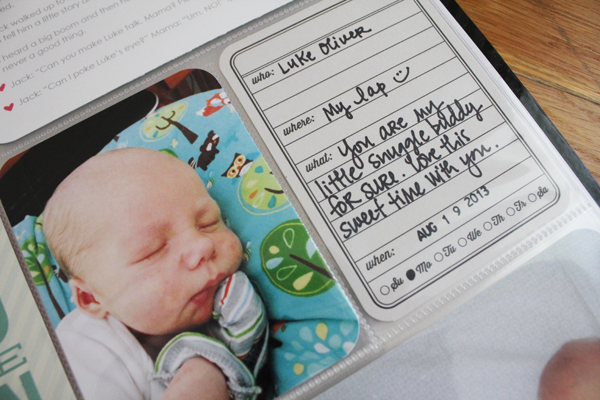 k walked up to
tell him a little story a
heard a big boom and then h
never a good thing.
Jack: "Can you make Luke talk, Mama? Plea
Jack: "Can I poke Luke's eye?" Mama: "Um, NO!"
who: LUKE OLIVER
where: My lap
what: You are my
little snuggle buddy
for sure. Love this
sweet time with you.
when: AUG 1 9 2013
Su Mo Tu We Th Fr Sa